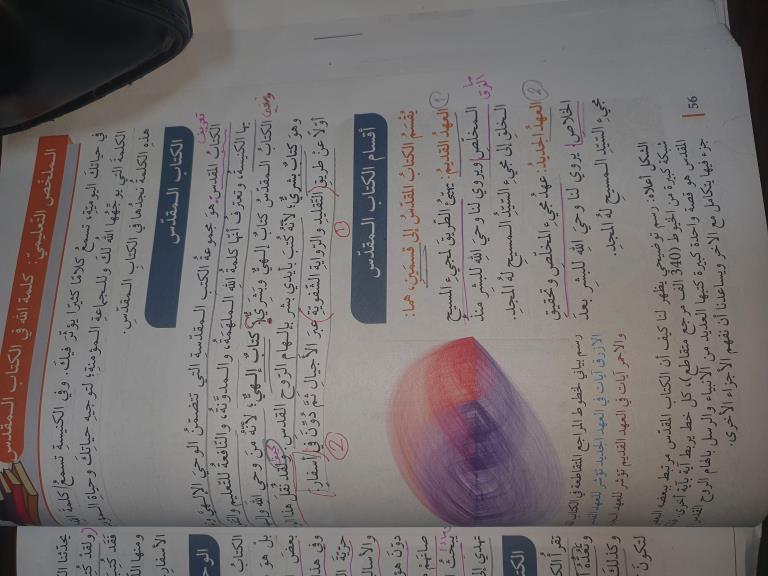 الملخص التعليمي: كلمة الله في الكتاب المقدس
في حياتك اليومية، تسمع كلامًا كثيرًا يؤثر فيك. وفي الكنيسة تسمع كلمة
الكلمة التي يوجهها الله لك وللجماعة المؤمنة؛ لتوجيه حياتك وحياة
هذه الكلمة نجدها في الكتاب المقدس.
الكتاب المقدس
تعريف
الكتاب المقدس: هو مجموعة الكتب المقدسة التي تتضمن الوحي الإلهي
بها الكنيسة، وتعترف أنها كلمة الله الملهمة، والمدونة، والنافعة للتعليم
الكتاب المقدس كتاب إلهي وبشري: كتاب إلهي؛ لأنه من وحي الله
وهو كتاب بشري؛ لأنه كتب بأيدي بشر بإلهام الروح القدس. ولقد نقل هذا
أولًا عن طريق (التقليد والرواية الشفوية) عبر الأجيال ثم دون في (أسفار).
①
②
أقسام الكتاب المقدس
يقسم الكتاب المقدس إلى قسمين، هما:
① العهد القديم: تهيئ الطريق لمجيء المسيح
المخلص ويروي لنا وحي الله للبشر منذ
الخلق إلى مجيء السيد المسيح له المجد.
② العهد الجديد: عهد مجيء المخلص وتحقيق
الخلاص يروي لنا وحي الله للبشر بعد
مجيء السيد المسيح له المجد.
رسم بياني لخطوط المراجع المتقاطعة في الكتاب
الأزرق آيات في العهد الجديد تؤشر للعهد
والأحمر آيات في العهد القديم تؤشر للعهد
الشكل أعلاه: رسم توضيحي يظهر لنا كيف أن الكتاب المقدس مرتبط ببعضه
شبكة كبيرة من الخيوط (340 ألف مرجع متقاطع)، كل خط يربط آية بآية أخرى.
المقدس هو قصة واحدة كبيرة كتبها العديد من الأنبياء والرسل بإلهام الروح القدس
جزء فيها يتكامل مع الآخر ويساعدنا أن نفهم الأجزاء الأخرى.
56